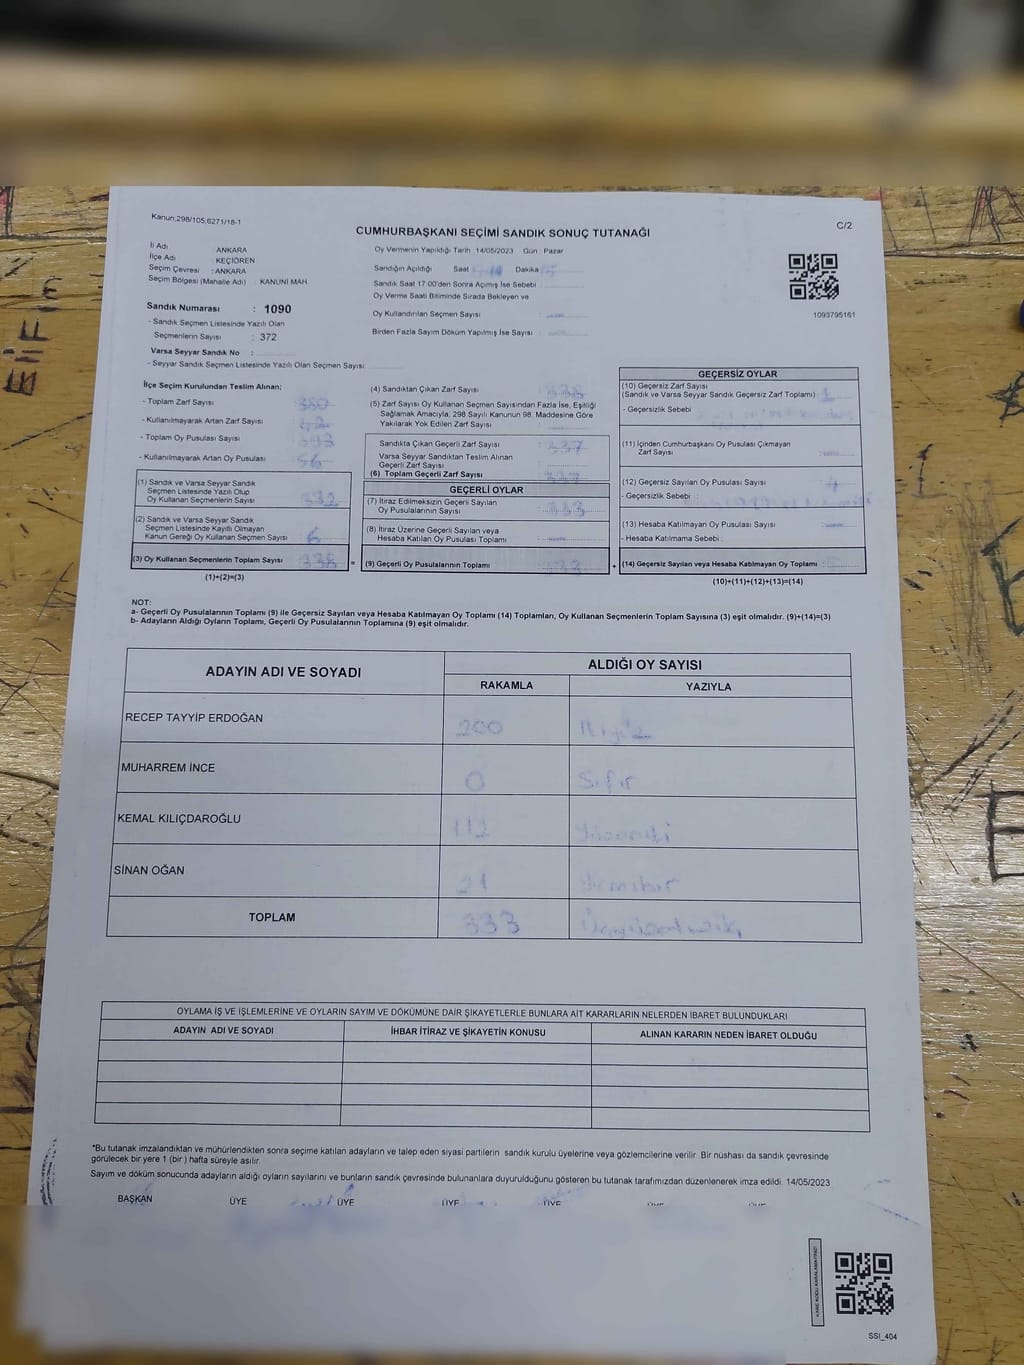 Kanun;298/105,6271/18-1
C/2
CUMHURBAŞKANI SEÇİMİ SANDIK SONUÇ TUTANAĞI
İli Adı : ANKARA
İlçe Adı : KEÇİÖREN
Seçim Çevresi : ANKARA
Seçim Bölgesi (Mahalle Adı) : KANUNİ MAH.
Oy Vermenin Yapıldığı Tarih : 14/05/2023 Gün : Pazar
Sandığın Açıldığı Saat Dakika
Sandık Saat 17.00'den Sonra Açılmış İse Sebebi :
Oy Verme Saati Bitiminde Sırada Bekleyen ve
Oy Kullandırılan Seçmen Sayısı :
Birden Fazla Sayım Döküm Yapılmış İse Sayısı :
1093795161
Sandık Numarası : 1090
- Sandık Seçmen Listesinde Yazılı Olan
Seçmenlerin Sayısı : 372
Varsa Seyyar Sandık No :
- Seyyar Sandık Seçmen Listesinde Yazılı Olan Seçmen Sayısı:
İlçe Seçim Kurulundan Teslim Alınan;
- Toplam Zarf Sayısı : 380
- Kullanılmayarak Artan Zarf Sayısı : 42
- Toplam Oy Pusulası Sayısı : 393
- Kullanılmayarak Artan Oy Pusulası :
(1) Sandık ve Varsa Seyyar Sandık
Seçmen Listesinde Yazılı Olup
Oy Kullanan Seçmenlerin Sayısı : 332
(2) Sandık ve Varsa Seyyar Sandık
Seçmen Listesinde Kayıtlı Olmayan
Kanun Gereği Oy Kullanan Seçmen Sayısı : 6
(3) Oy Kullanan Seçmenlerin Toplam Sayısı : 338
(1)+(2)=(3)
(4) Sandıktan Çıkan Zarf Sayısı : 338
(5) Zarf Sayısı Oy Kullanan Seçmen Sayısından Fazla İse, Eşitliği
Sağlamak Amacıyla, 298 Sayılı Kanunun 98. Maddesine Göre
Yakılarak Yok Edilen Zarf Sayısı :
Sandıkta Çıkan Geçerli Zarf Sayısı : 337
Varsa Seyyar Sandıktan Teslim Alınan
Geçerli Zarf Sayısı :
(6) Toplam Geçerli Zarf Sayısı : 337
GEÇERLİ OYLAR
(7) İtiraz Edilmeksizin Geçerli Sayılan
Oy Pusulalarının Sayısı : 333
(8) İtiraz Üzerine Geçerli Sayılan veya
Hesaba Katılan Oy Pusulası Toplamı :
= (9) Geçerli Oy Pusulalarının Toplamı : 333
GEÇERSİZ OYLAR
(10) Geçersiz Zarf Sayısı
(Sandık ve Varsa Seyyar Sandık Geçersiz Zarf Toplamı) : 1
- Geçersizlik Sebebi :
(11) İçinden Cumhurbaşkanı Oy Pusulası Çıkmayan
Zarf Sayısı :
(12) Geçersiz Sayılan Oy Pusulası Sayısı : 4
- Geçersizlik Sebebi :
(13) Hesaba Katılmayan Oy Pusulası Sayısı :
- Hesaba Katılmama Sebebi :
+ (14) Geçersiz Sayılan veya Hesaba Katılmayan Oy Toplamı :
(10)+(11)+(12)+(13)=(14)
NOT:
a- Geçerli Oy Pusulalarının Toplamı (9) ile Geçersiz Sayılan veya Hesaba Katılmayan Oy Toplamı (14) Toplamları, Oy Kullanan Seçmenlerin Toplam Sayısına (3) eşit olmalıdır. (9)+(14)=(3)
b- Adayların Aldığı Oyların Toplamı, Geçerli Oy Pusulalarının Toplamına (9) eşit olmalıdır.
ADAYIN ADI VE SOYADI
ALDIĞI OY SAYISI
RAKAMLA YAZIYLA
RECEP TAYYİP ERDOĞAN 200 İkiyüz
MUHARREM İNCE 0 Sıfır
KEMAL KILIÇDAROĞLU 112 Yüzoniki
SİNAN OĞAN 21 Yirmibir
TOPLAM 333 Üçyüzotuzüç
OYLAMA İŞ VE İŞLEMLERİNE VE OYLARIN SAYIM VE DÖKÜMÜNE DAİR ŞİKAYETLERLE BUNLARA AİT KARARLARIN NELERDEN İBARET BULUNDUKLARI
ADAYIN ADI VE SOYADI İHBAR İTİRAZ VE ŞİKAYETİN KONUSU ALINAN KARARIN NEDEN İBARET OLDUĞU
*Bu tutanak imzalandıktan ve mühürlendikten sonra seçime katılan adayların ve talep eden siyasi partilerin sandık kurulu üyelerine veya gözlemcilerine verilir. Bir nüshası da sandık çevresinde
görülecek bir yere 1 (bir ) hafta süreyle asılır.
Sayım ve döküm sonucunda adayların aldığı oyların sayılarını ve bunların sandık çevresinde bulunanlara duyurulduğunu gösteren bu tutanak tarafımızdan düzenlenerek imza edildi. 14/05/2023
BAŞKAN ÜYE ÜYE ÜYE ÜYE ÜYE ÜYE
KARE KODU KARALAMAYINIZ!
SSI_404